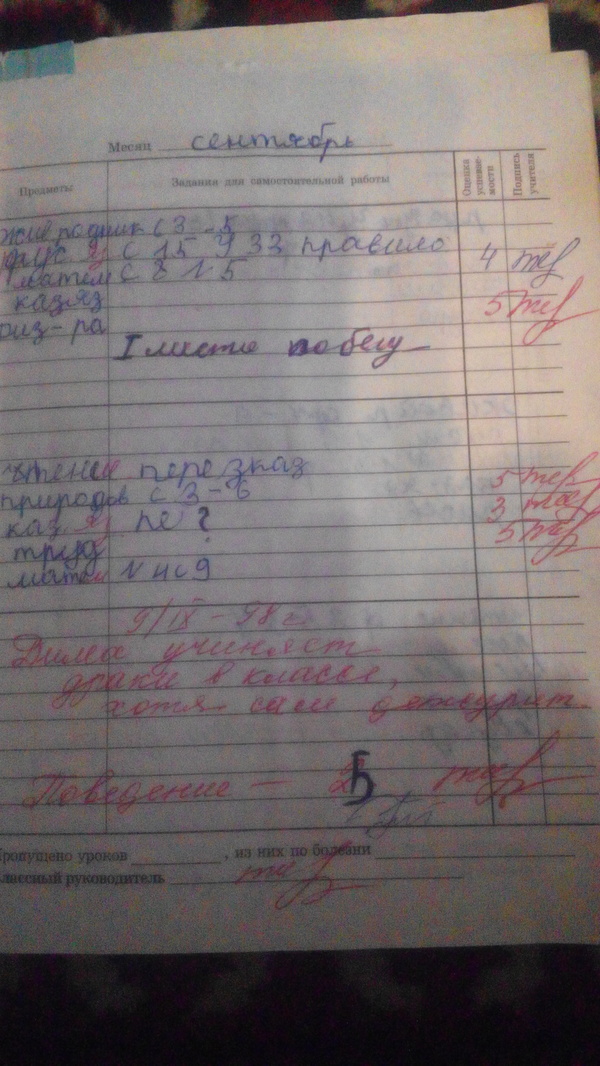 Месяц сентябрь
Предметы
Задания для самостоятельной работы
Оценка успеваемости
Подпись учителя
с 3-5
с 15 у 33 правило 4
матем с 8 N 5
каз яз 5
физ-ра
I место по бегу
чтение пере зказ 5
природов с 3-6 3
каз. яз ? 5
труд
матем N 4 с 9
9/IX-98 г.
учиняет
драки в классе,
хотя сам дежурит.
Поведение — 5
Пропущено уроков , из них по болезни
Классный руководитель